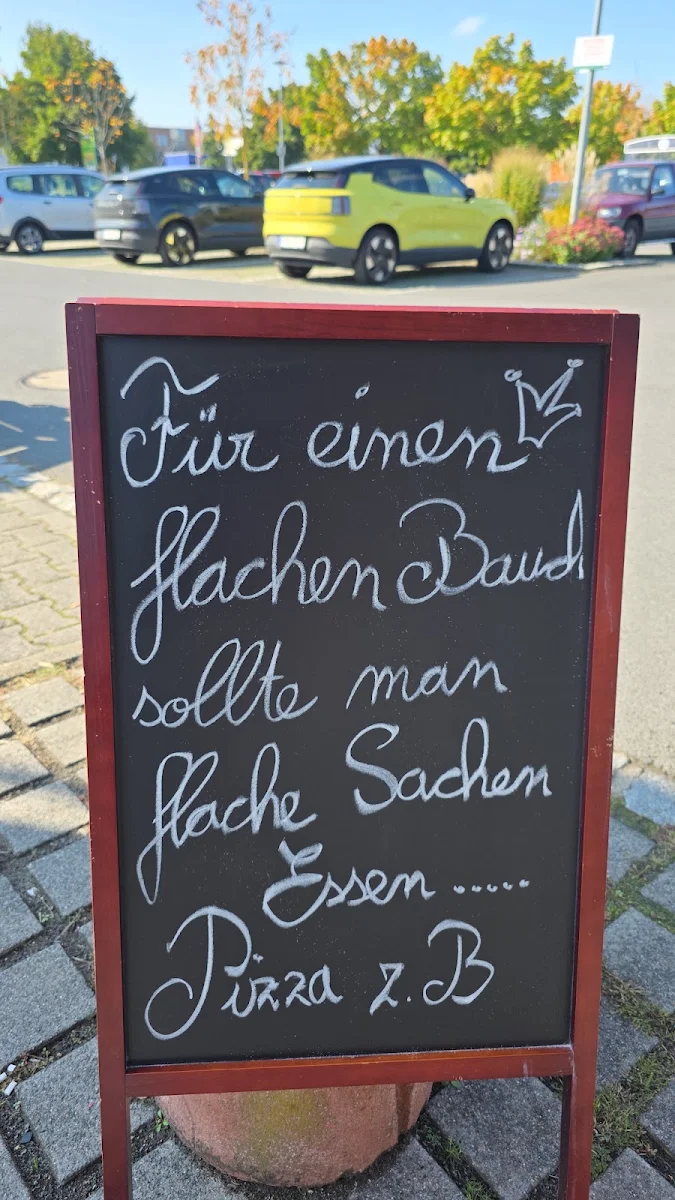 Für einen
flachen Bauch
sollte man
flache Sachen
Essen .....
Pizza z.B